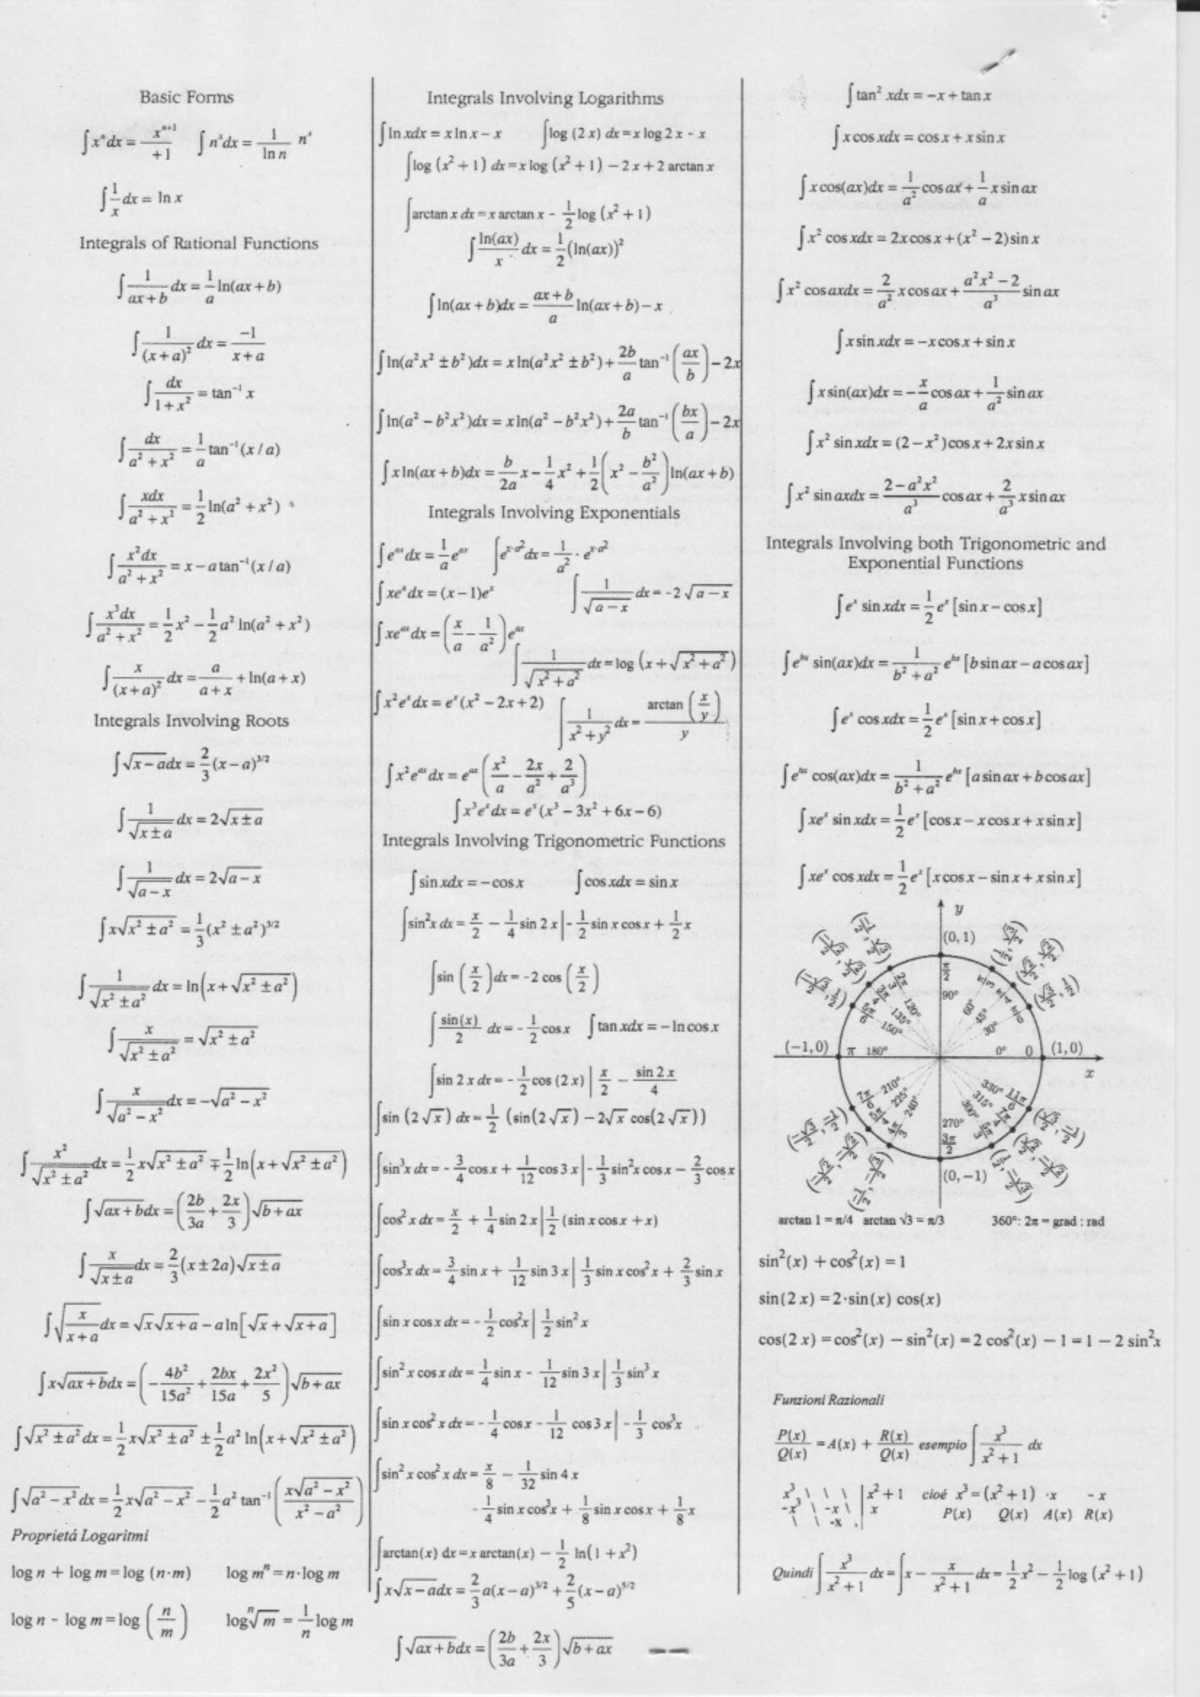 Basic Forms
∫ xⁿdx = xⁿ⁺¹ / +1    ∫ nˣdx = 1/ln n nˣ
∫ 1/x dx = ln x
Integrals of Rational Functions
∫ 1/(ax+b) dx = 1/a ln(ax+b)
∫ 1/(x+a)² dx = −1/(x+a)
∫ dx/(1+x²) = tan⁻¹ x
∫ dx/(a²+x²) = 1/a tan⁻¹(x/a)
∫ xdx/(a²+x²) = 1/2 ln(a²+x²)
∫ x²dx/(a²+x²) = x − a tan⁻¹(x/a)
∫ x³dx/(a²+x²) = 1/2 x² − 1/2 a² ln(a²+x²)
∫ x/(x+a)² dx = a/(a+x) + ln(a+x)
Integrals Involving Roots
∫ √(x−a)dx = 2/3 (x−a)^3/2
∫ 1/√(x±a) dx = 2√(x±a)
∫ 1/√(a−x) dx = 2√(a−x)
∫ x√(x²±a²) = 1/3 (x²±a²)^3/2
∫ 1/√(x²±a²) dx = ln(x+√(x²±a²))
∫ x/√(x²±a²) = √(x²±a²)
∫ x/√(a²−x²) dx = −√(a²−x²)
∫ x²/√(x²±a²) dx = 1/2 x√(x²±a²) ∓ 1/2 ln(x+√(x²±a²))
∫ √(ax+b)dx = (2b/3a + 2x/3)√(b+ax)
∫ x/√(x±a) dx = 2/3 (x±2a)√(x±a)
∫ √(x/(x+a)) dx = √x√(x+a) − a ln[√x+√(x+a)]
∫ x√(ax+b)dx = (−4b²/15a² + 2bx/15a + 2x²/5)√(b+ax)
∫ √(x²±a²)dx = 1/2 x√(x²±a²) ± 1/2 a² ln(x+√(x²±a²))
∫ √(a²−x²)dx = 1/2 x√(a²−x²) − 1/2 a² tan⁻¹(x√(a²−x²)/(x²−a²))
Proprietá Logaritmi
log n + log m = log (n·m)    log mⁿ = n·log m
log n - log m = log (n/m)    log ⁿ√m = 1/n log m
Integrals Involving Logarithms
∫ ln xdx = x ln x − x    ∫ log (2 x) dx = x log 2 x - x
∫ log (x²+1) dx = x log (x²+1) − 2 x + 2 arctan x
∫ arctan x dx = x arctan x - 1/2 log (x²+1)
∫ ln(ax)/x dx = 1/2 (ln(ax))²
∫ ln(ax+b)dx = (ax+b)/a ln(ax+b) − x
∫ ln(a²x²±b²)dx = x ln(a²x²±b²) + 2b/a tan⁻¹(ax/b) − 2x
∫ ln(a²−b²x²)dx = x ln(a²−b²x²) + 2a/b tan⁻¹(bx/a) − 2x
∫ x ln(ax+b)dx = b/2a x − 1/4 x² + 1/2 (x² − b²/a²) ln(ax+b)
Integrals Involving Exponentials
∫ eᵃˣdx = 1/a eᵃˣ    ∫ e^(x·a²) dx = 1/a² · e^(x·a²)
∫ xeˣdx = (x−1)eˣ    ∫ 1/√(a−x) dx = -2√(a−x)
∫ xeᵃˣdx = (x/a − 1/a²)eᵃˣ
∫ 1/√(x²+a²) dx = log (x+√(x²+a²))
∫ x²eˣdx = eˣ(x²−2x+2)    ∫ 1/(x²+y²) dx = arctan (x/y) / y
∫ x²eᵃˣdx = eᵃˣ(x²/a − 2x/a² + 2/a³)
∫ x³eˣdx = eˣ(x³−3x²+6x−6)
Integrals Involving Trigonometric Functions
∫ sin xdx = −cos x    ∫ cos xdx = sin x
∫ sin²x dx = x/2 − 1/4 sin 2 x | - 1/2 sin x cos x + 1/2 x
∫ sin (x/2) dx = -2 cos (x/2)
∫ sin(x)/2 dx = - 1/2 cos x    ∫ tan xdx = −ln cos x
∫ sin 2 x dx = - 1/2 cos (2 x) | x/2 − sin 2 x/4
∫ sin (2√x) dx = 1/2 (sin(2√x) − 2√x cos(2√x))
∫ sin³x dx = - 3/4 cos x + 1/12 cos 3 x | - 1/3 sin²x cos x − 2/3 cos x
∫ cos² x dx = x/2 + 1/4 sin 2 x | 1/2 (sin x cos x + x)
∫ cos³x dx = 3/4 sin x + 1/12 sin 3 x | 1/3 sin x cos² x + 2/3 sin x
∫ sin x cos x dx = - 1/2 cos²x | 1/2 sin² x
∫ sin² x cos x dx = 1/4 sin x - 1/12 sin 3 x | 1/3 sin³ x
∫ sin x cos² x dx = - 1/4 cos x - 1/12 cos 3 x | - 1/3 cos³x
∫ sin² x cos² x dx = x/8 − 1/32 sin 4 x
- 1/4 sin x cos³x + 1/8 sin x cos x + 1/8 x
∫ arctan(x) dx = x arctan(x) − 1/2 ln(1+x²)
∫ x√(x−a)dx = 2/3 a(x−a)^3/2 + 2/5 (x−a)^5/2
∫ √(ax+b)dx = (2b/3a + 2x/3)√(b+ax)
∫ tan² xdx = −x + tan x
∫ x cos xdx = cos x + x sin x
∫ x cos(ax)dx = 1/a² cos ax + 1/a x sin ax
∫ x² cos xdx = 2x cos x + (x²−2) sin x
∫ x² cos axdx = 2/a² x cos ax + (a²x²−2)/a³ sin ax
∫ x sin xdx = −x cos x + sin x
∫ x sin(ax)dx = −x/a cos ax + 1/a² sin ax
∫ x² sin xdx = (2−x²) cos x + 2x sin x
∫ x² sin axdx = (2−a²x²)/a³ cos ax + 2/a³ x sin ax
Integrals Involving both Trigonometric and
Exponential Functions
∫ eˣ sin xdx = 1/2 eˣ [sin x − cos x]
∫ eᵇˣ sin(ax)dx = 1/(b²+a²) eᵇˣ [b sin ax − a cos ax]
∫ eˣ cos xdx = 1/2 eˣ [sin x + cos x]
∫ eᵇˣ cos(ax)dx = 1/(b²+a²) eᵇˣ [a sin ax + b cos ax]
∫ xeˣ sin xdx = 1/2 eˣ [cos x − x cos x + x sin x]
∫ xeˣ cos xdx = 1/2 eˣ [x cos x − sin x + x sin x]
y
(0, 1)
π/2
90°
120° 135° 150°
60° 45° 30°
(−1, 0) π 180° 0° 0 (1, 0)
x
210° 225° 240°
330° 315° 300°
270°
3π/2
(0, −1)
arctan 1 = π/4 arctan √3 = π/3    360°: 2π = grad : rad
sin²(x) + cos²(x) = 1
sin(2 x) = 2·sin(x) cos(x)
cos(2 x) = cos²(x) − sin²(x) = 2 cos²(x) − 1 = 1 − 2 sin²x
Funzioni Razionali
P(x)/Q(x) = A(x) + R(x)/Q(x) esempio ∫ x³/(x²+1) dx
x³ \ \ \ | x²+1 cioé x³ = (x²+1) ·x - x
-x³ \ -x \ | x    P(x) Q(x) A(x) R(x)
\ \ -x
Quindi ∫ x³/(x²+1) dx = ∫ x − x/(x²+1) dx = 1/2 x² − 1/2 log (x²+1)